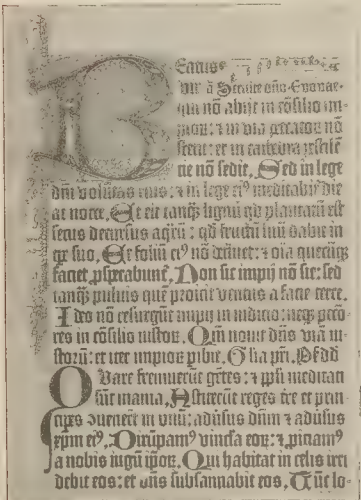 Beatus
vir ꝗ
qui nō abijt in cōsilio im-
piorū: ⁊ in via pctatorū nō
stetit: et in cathedra pestilē-
tie nō sedit. Sed in lege
dn̄i volūtas eius: ⁊ in lege eiꝰ meditabit͛ die
ac nocte. Et erit tanꝙ̄ lignū qd̛ plantatū est
secus decursus aqrū: qd̛ fructū suū dabit in
tꝑe suo. Et foliū eiꝰ nō defluet: ⁊ oīa quecūqꝫ
faciet ꝓsperabunt͛. Non sic impij nō sic: sed
tanꝙ̄ puluis quē proicit ventus a facie terre.
Ideo nō resurgūt impij in iudicio: neqꝫ pctō-
res in cōsilio iustoꝝ. Qm̄ nouit dn̄s viā iu-
stoꝝ: et iter impioꝝ ꝑibit. Gl̄ia pr̄i.
Quare fremuerūt gētes: ⁊ ppl̄i meditati
sūt inania. Astiterūt reges t̄re et prin-
cipes ꝯuenerūt in vnū: aduersus dn̄m ⁊ aduersus
xp̄m eiꝰ. Dirūpamꝰ vincl̄a eoꝝ: ⁊ ꝓiciamꝰ
a nobis iugū ip̄oꝝ. Qui habitat in celis irri-
debit eos: et dn̄s subsannabit eos. Tūc lo-